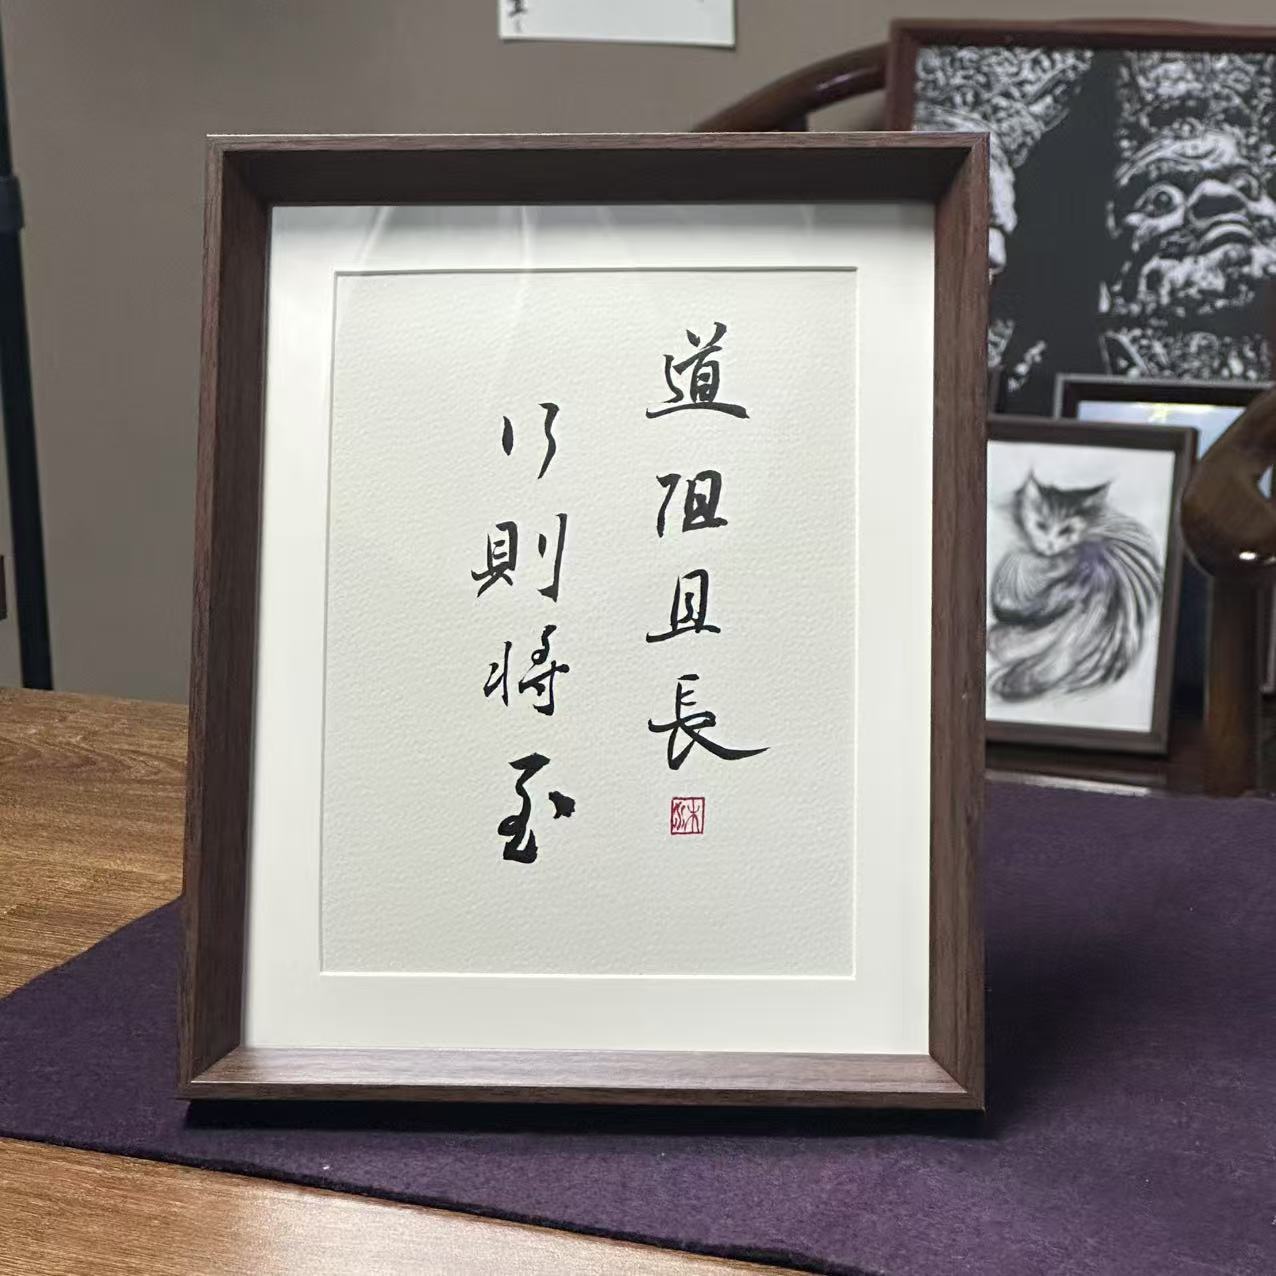 道阻且長
行則將至
沐